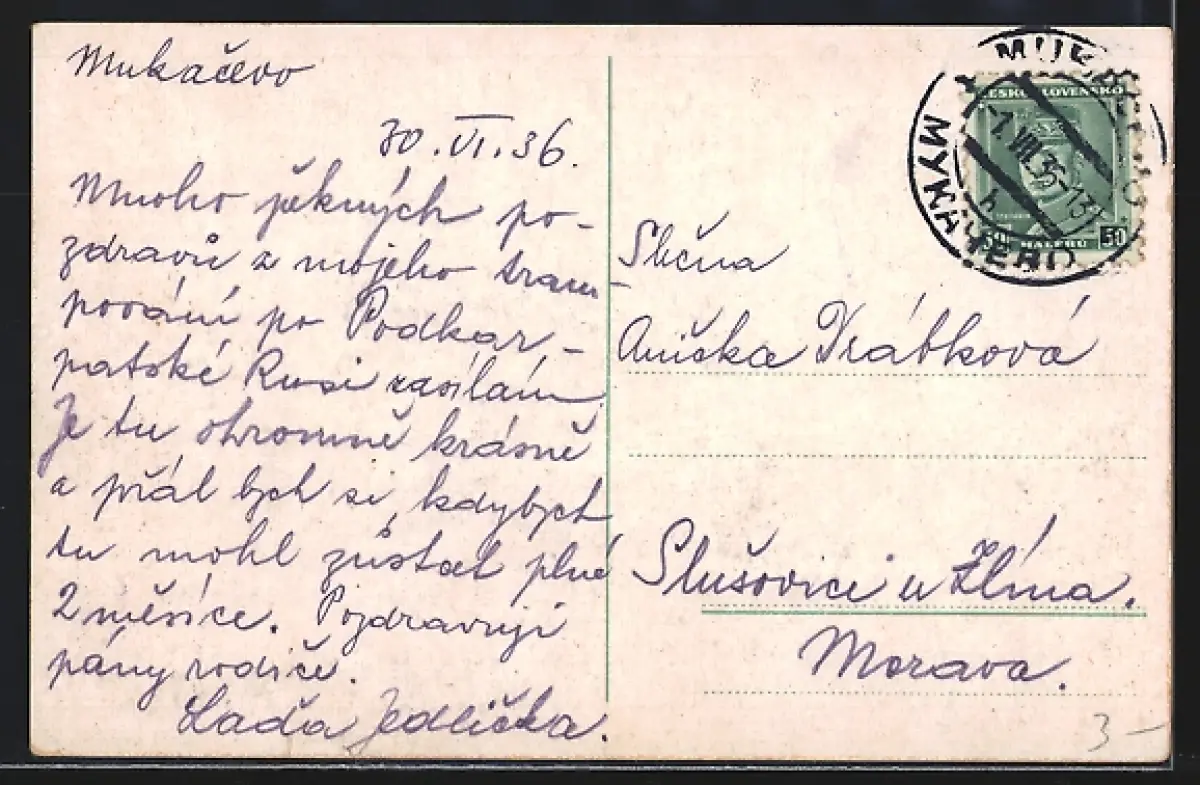 Mukačevo
30. VI. 36.
Mnoho pěkných po-
zdravů z mojeho tram-
pování po Podkar-
patské Rusi zasílám.
Je tu ohromně krásně
a přál bych si, kdybych
tu mohl zůstat plné
2 měsíce. Pozdravuji
pány rodiče.
Laďa Jedlička.
ČESKOSLOVENSKO
50 HALÉŘŮ 50
МУКАЧЕВО
Slečna
Anička Vrábková
Slušovice u Zlína.
Morava.
3-